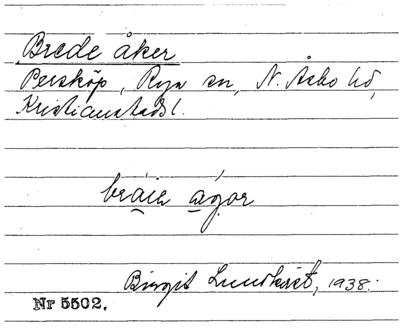 Brede åker
Persköp, Rya sn, N. Åsbo hd,
Kristianstads l.
Birgit Lundkvist, 1938.
Nr 5502.